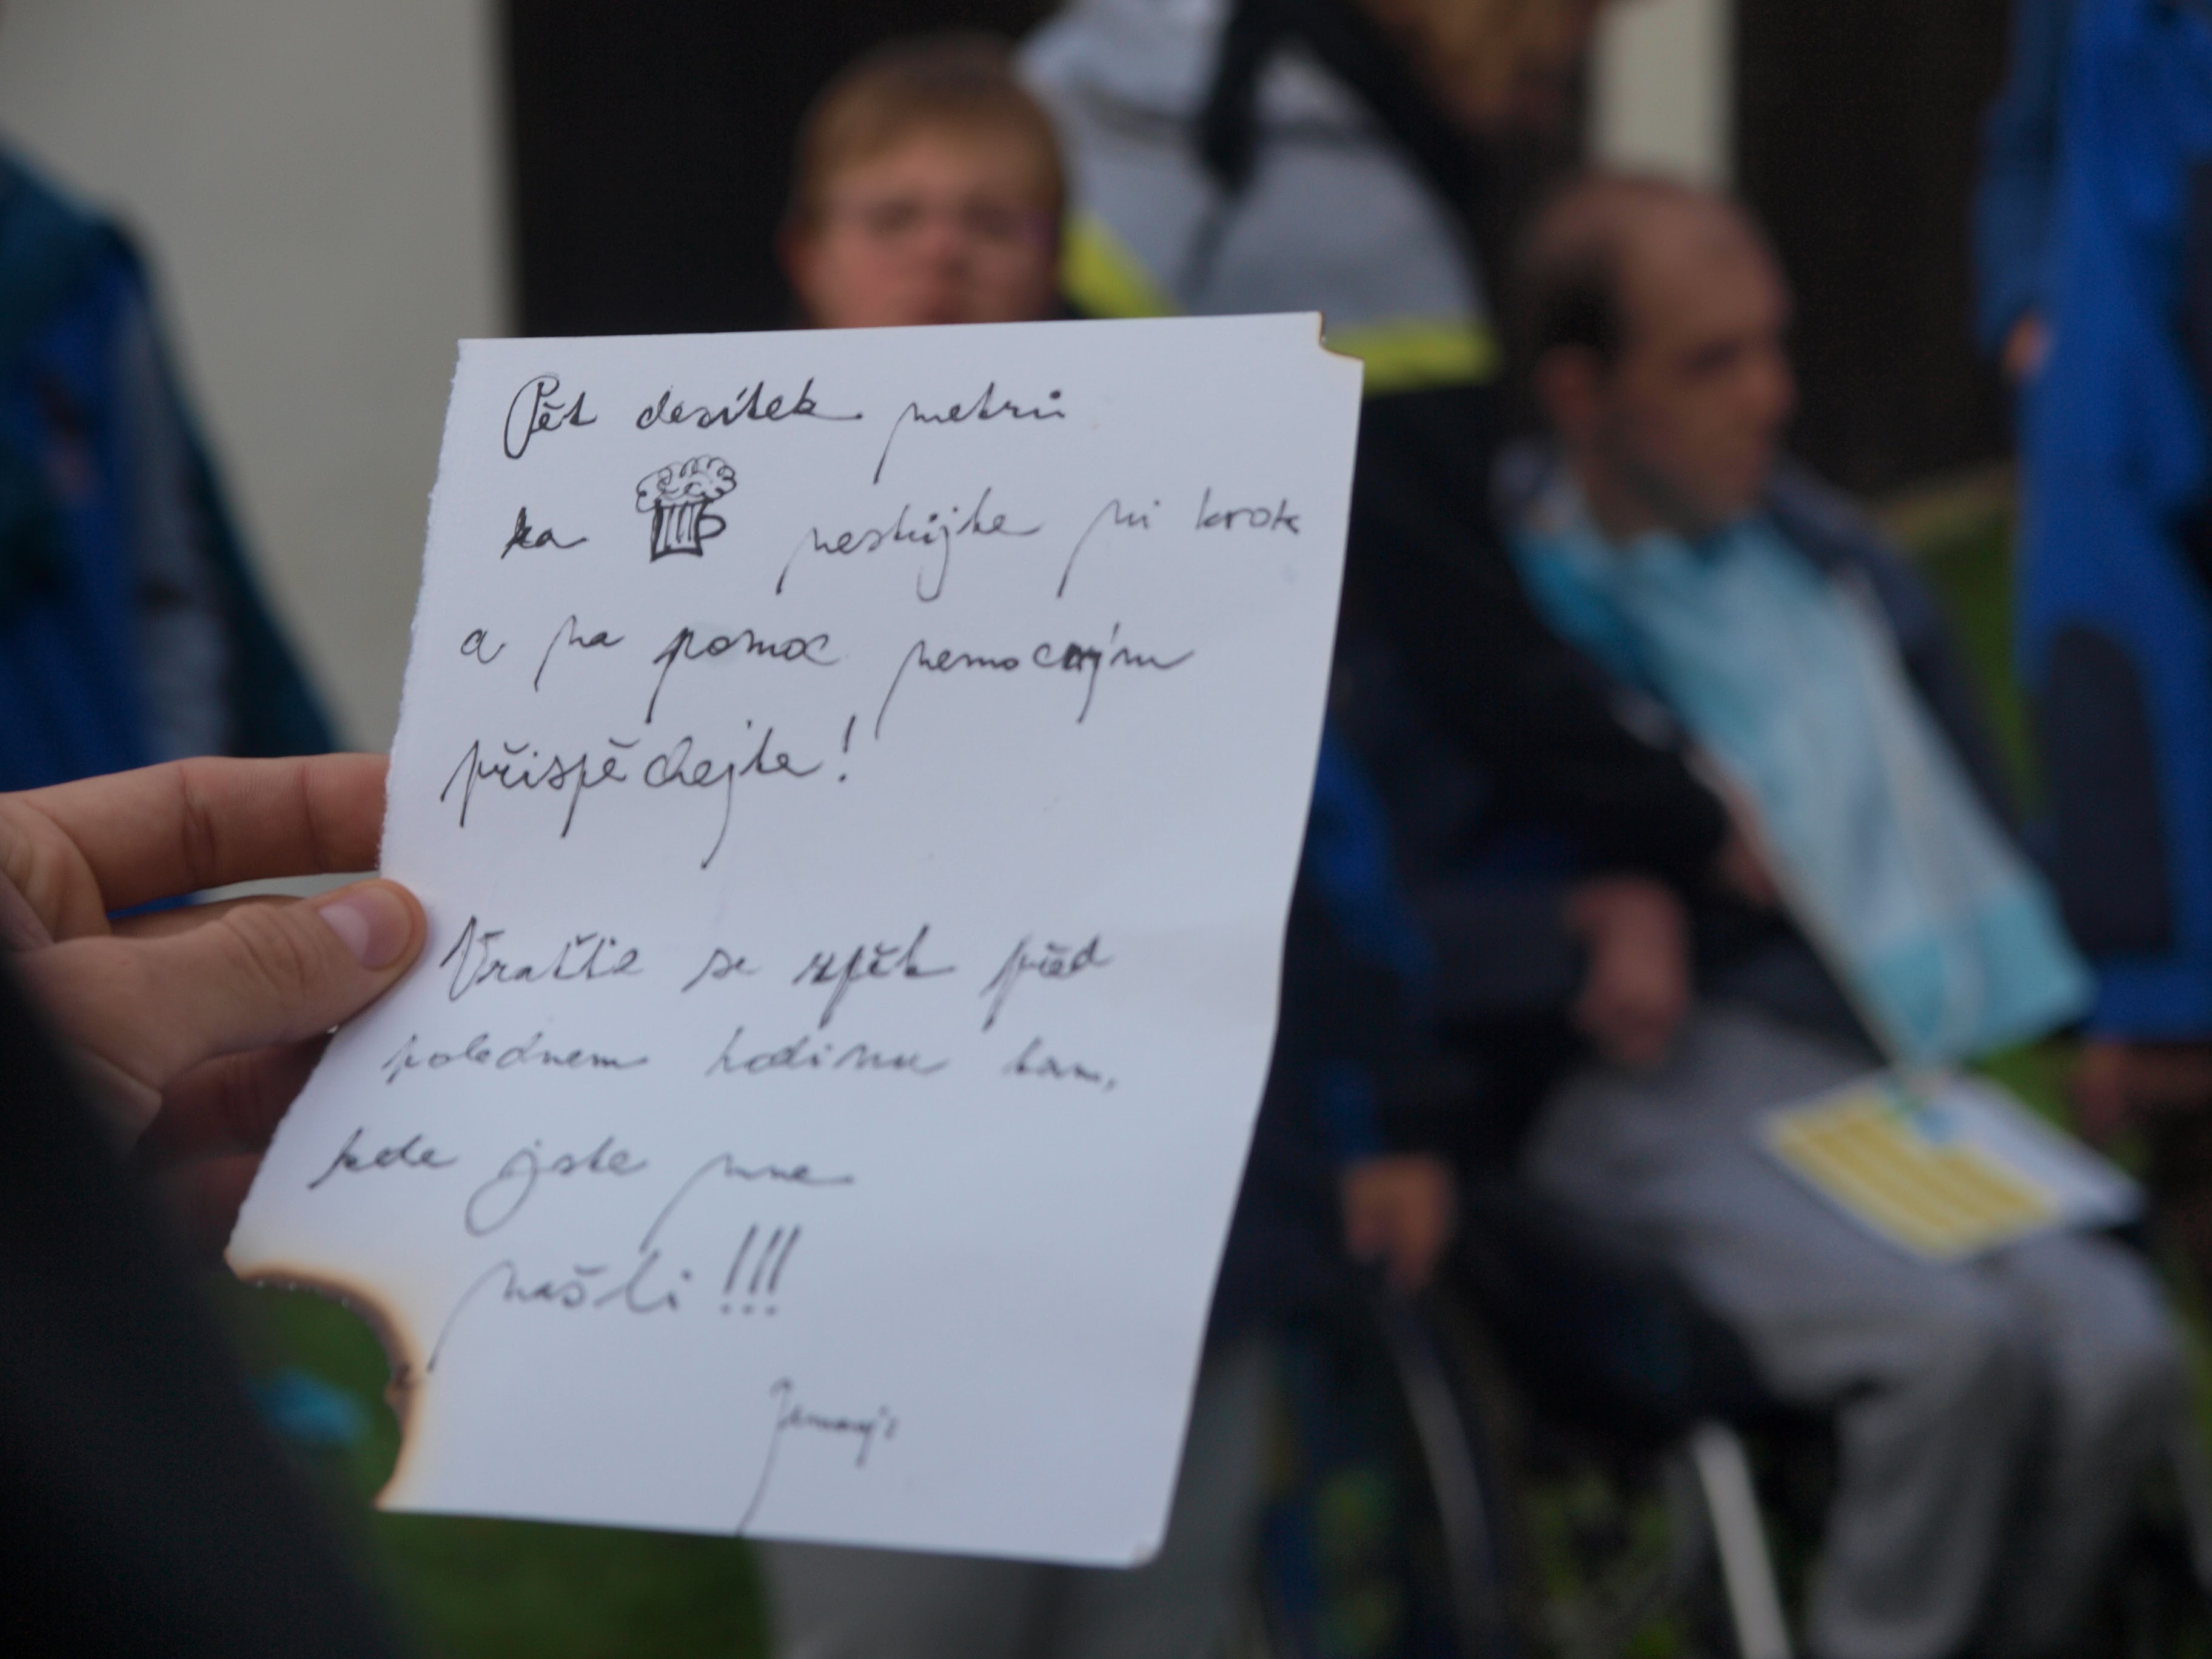 Pět desítek metrů
za neslujte ni krok
a na pomoc nemocným
přispěchejte!
Vraťte se zpět před
polednem hodinu tam,
kde jste mne
našli!!!